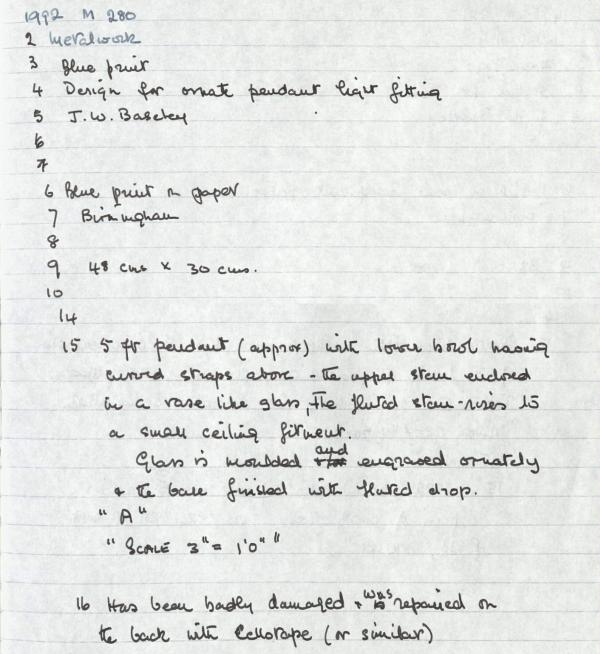 1992 M 280
2 Metalwork
3 Blue print
4 Design for ornate pendant light fitting
5 J.W. Baseley
6
7
6 Blue print on paper
7 Birmingham
8
9 48 cms x 30 cms.
10
14
15 5 ft pendant (approx) with lower bowl having
curved straps above - the upper stem enclosed
in a vase like glass, the fluted stem rises to
a small ceiling fitment.
Glass is moulded and engraved ornately
& the base finished with fluted drop.
"A"
"SCALE 3" = 1'0" "
16 Has been badly damaged & was repaired on
the back with Cellotape (or similar)